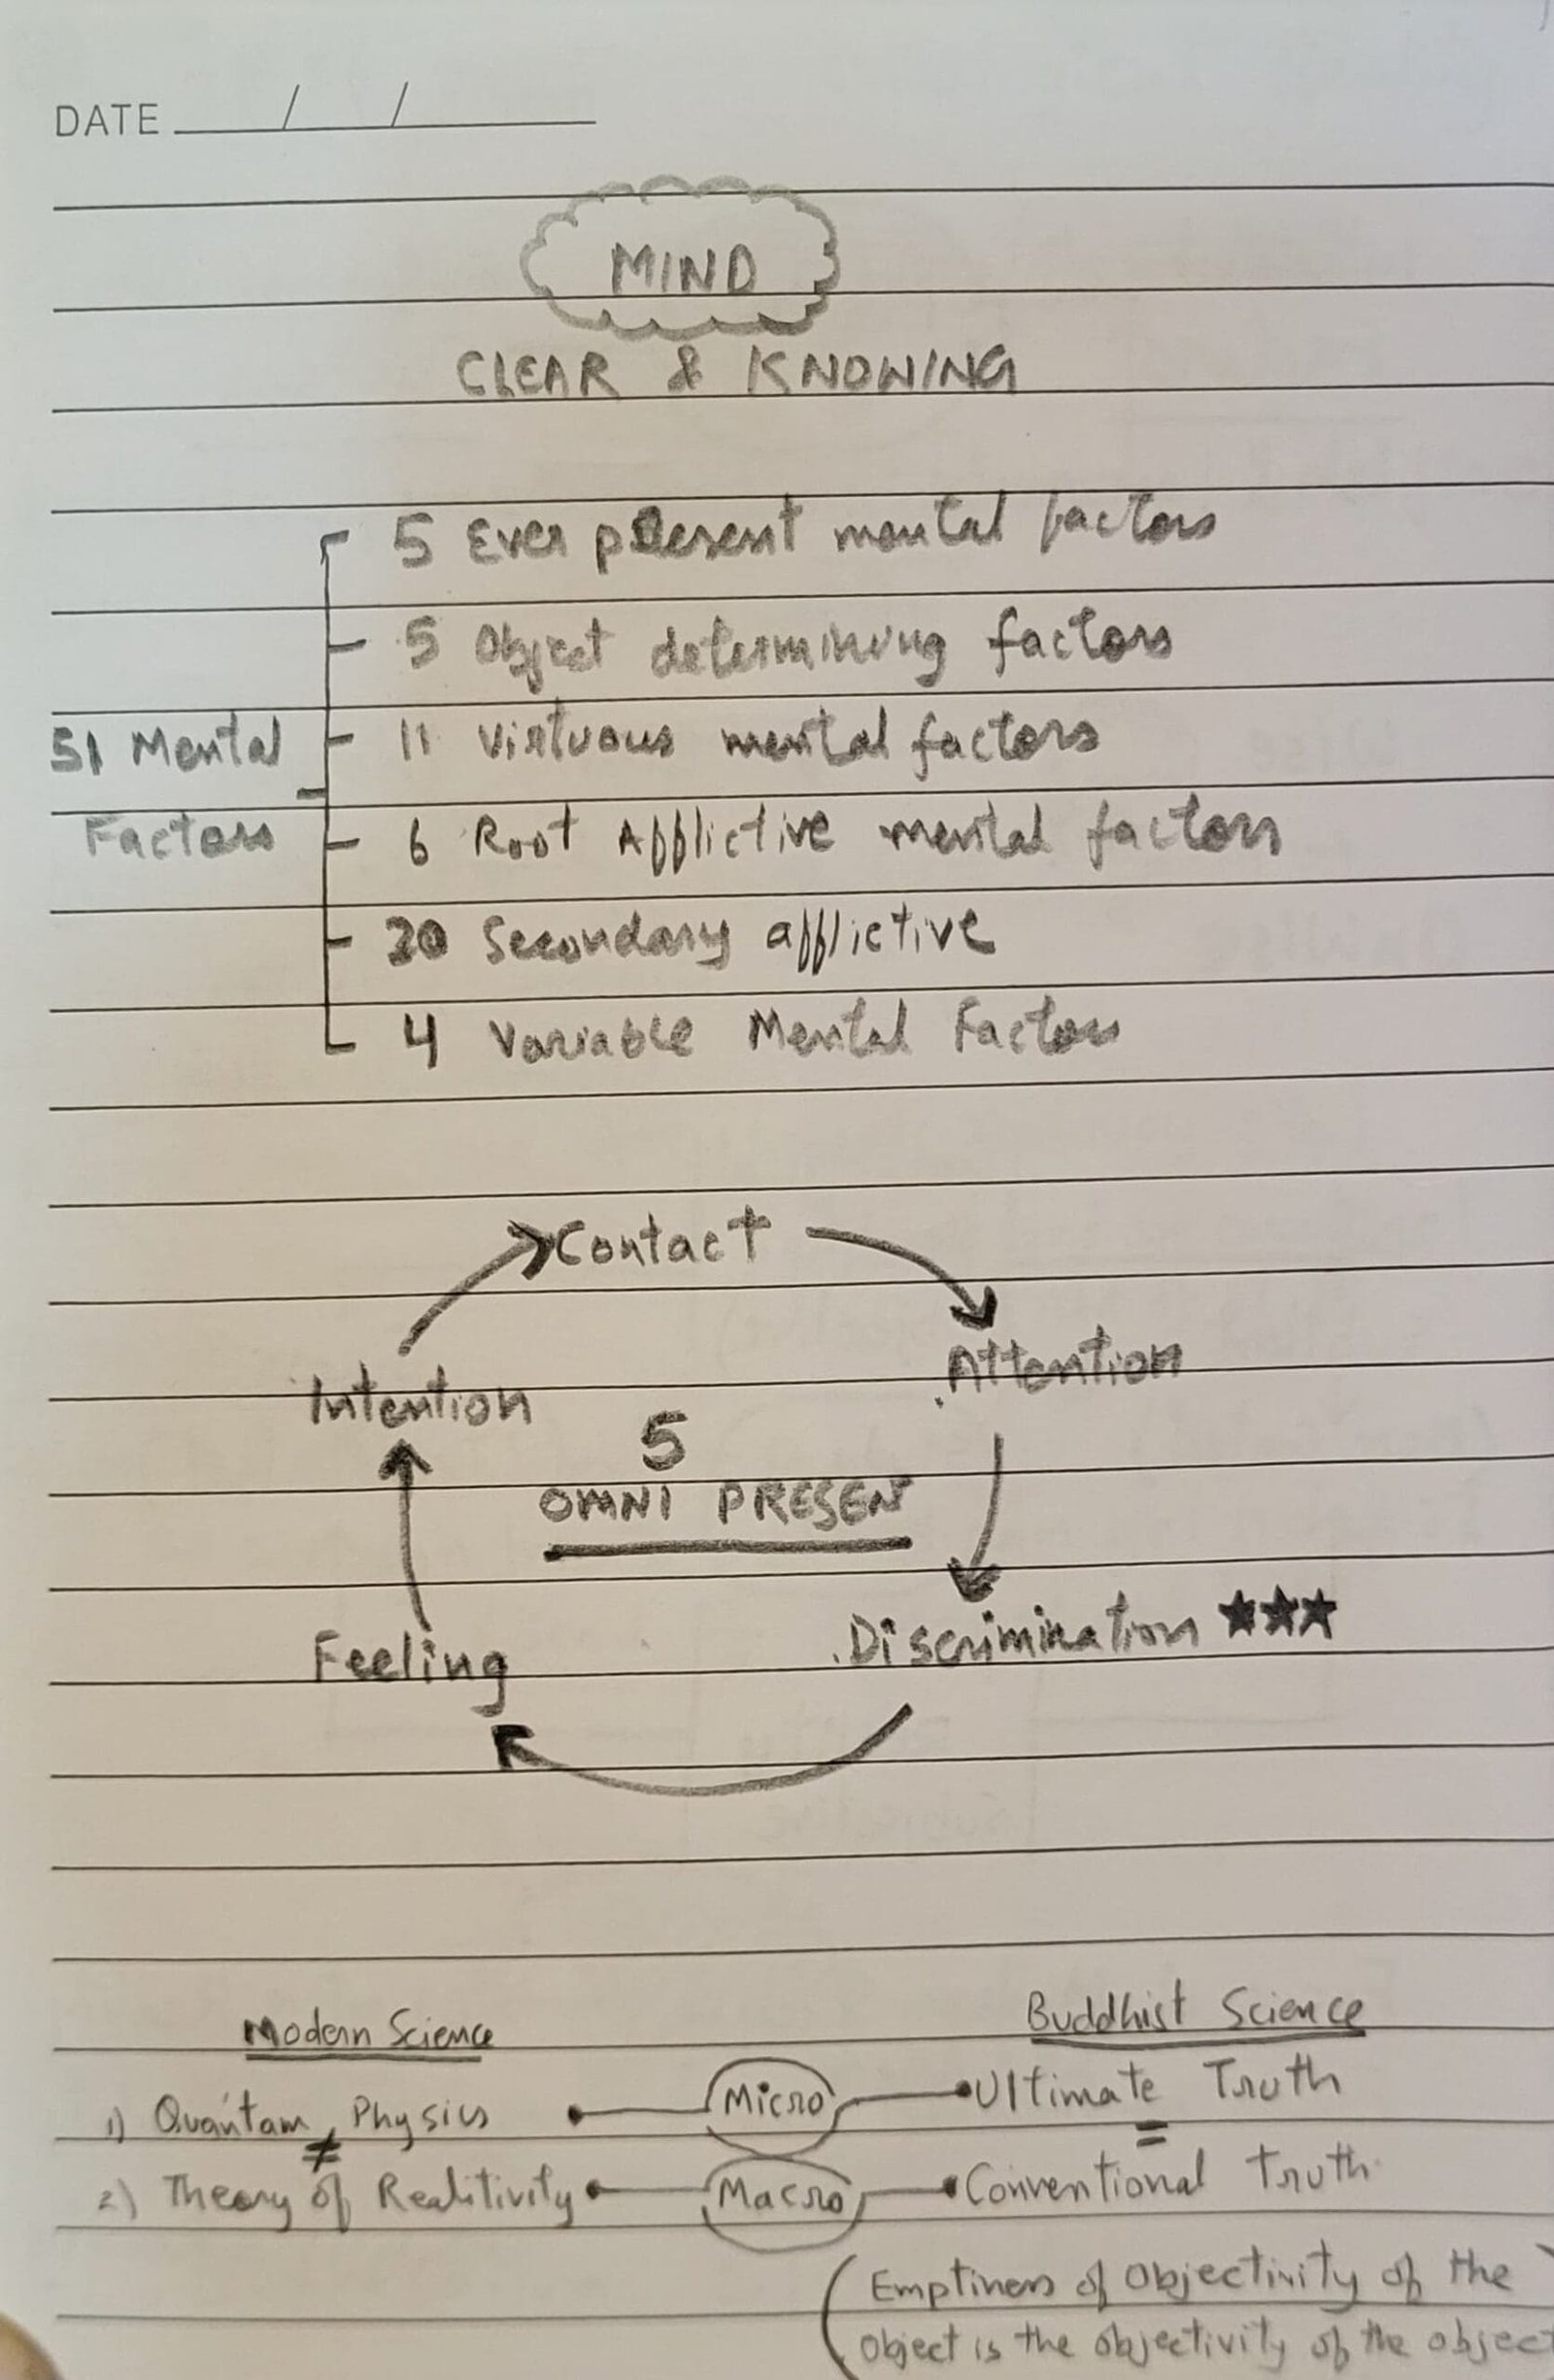 DATE / /
MIND
CLEAR & KNOWING
5 Ever present mental factors
5 Object determining factors
51 Mental
11 Virtuous mental factors
Factors
6 Root Afflictive mental factors
20 Secondary afflictive
4 Variable Mental Factors
Contact
Attention
Intention
5
OMNI PRESENT
Discrimination ★★★
Feeling
Modern Science
Buddhist Science
1) Quantam Physics
Micro
Ultimate Truth
≠
=
2) Theory of Realitivity
Macro
Conventional Truth
(Emptiness of Objectivity of the
Object is the objectivity of the object